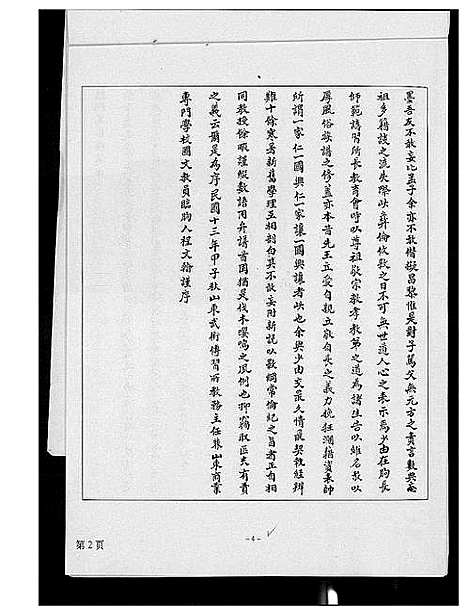 墨吾友不敢妄比孟子余亦不敢僭擬昌黎惟是對子篤父無元方之責言數典忘
祖多籍談之流失際此彝倫攸斁之日不可無世道人心之表示焉少由在朐長
師範講習所長教育會時以尊祖敬宗教孝教弟之道為諸生告以維名教以
厚風俗族譜之修蓋亦本昔先王立愛自親立敬自長之義力挽狂瀾措資表師
所謂一家仁一國興仁一家讓一國興讓者此也余與少由交最久情最契執經辨
難十餘寒暑新舊學理互相剖白其不敢妄附新說以斁綱常倫紀之旨者正自相
同教授餘暇謹綴數語用弁譜首固猶是伐木嚶鳴之風例也抑竊取匹夫有責
之義云爾是為序民國十三年甲子秋山東武術傳習所教務主任兼山東商業
專門學校國文教員臨朐人程文翰謹序
-4-
第2頁